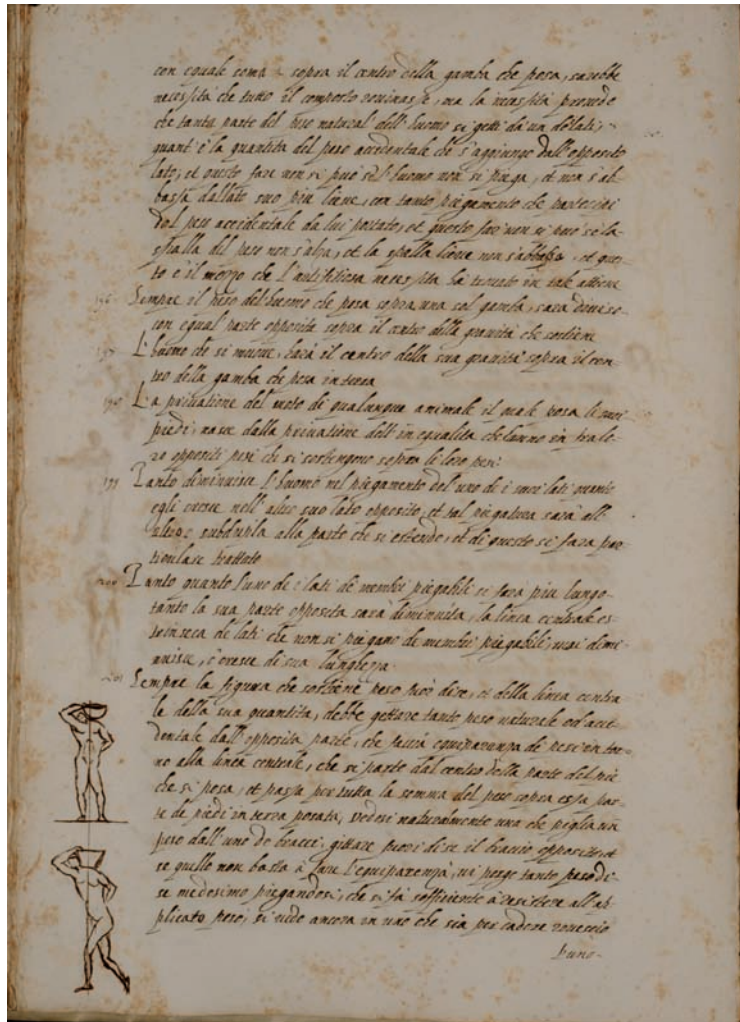 con equale soma sopra il centro della gamba che posa, sarebbe
necessità che tutto il composto rovinasse, ma la necessità provede
che tanta parte del peso natural dell'huomo si getti da un de lati,
quant'è la quantita del peso accidentale che s'aggiunge dall'opposito
lato, et questo fare non si può se l'huomo non si piega, et non s'ab-
bassa dallato suo piu lieve, con tanto piegamento che partecipi
del peso accidentale da lui portato, et questo far non si può se la
spalla del peso non s'alza, et la spalla lieve non s'abbassa, et ques-
to è il mezzo che l'artifitiosa necessita ha trovato in tale attione
196 Sempre il peso del huomo che posa sopra una sol gamba, sara diviso
con equal parte opposita sopra il centro delle gravità che sostiene
197 L'huomo che si muove, havà il centro della sua gravità sopra il cen-
tro della gamba che posa in terra
198 La privatione del moto di qualunque animale il quale posa li suoi
piedi, nasce dalla privatione dell'inequalita che hanno in fra lo-
ro oppositi pesi che si sostengono sopra li loro pesi:
199 Tanto diminuisce l'huomo nel piegamento del uno de i suoi lati quanto
egli cresce nell'altro suo lato opposito, et tal piegatura sarà all'
ultimo subdupla alla parte che si estende, et di questo si fara par-
ticulare trattato
200 Tanto quanto l'uno de i lati de membri piegabili si fara piu lungo
tanto la sua parte opposita sarà diminuita, la linea centrale es-
trinseca de lati che non si piegano de membri piegabili, mai dimi-
nuisce, o cresce di sua lunghezza.
201 Sempre la figura che sostiene peso fuor di se, et della linea centra
le della sua quantita, debbe gettare tanto peso naturale od acci-
dentale dall'opposita parte, che faccia equiparanza de pesi intor-
no alla linea centrale, che si parte dal centro della parte del piè
che si posa, et passa per tutta la somma del peso sopra essa par-
te de piedi in terra posata, vedesi naturalmente uno che piglia un
peso dall'uno de bracci, gittare fuori di se il braccio opposito, et
se quello non basta à fare l'equiparenza, vi porge tanto peso di
se medesimo piegandosi, che si fà soffitiente à resistere all'ap-
plicato peso, si vede ancora in uno che sia per cadere rovescio